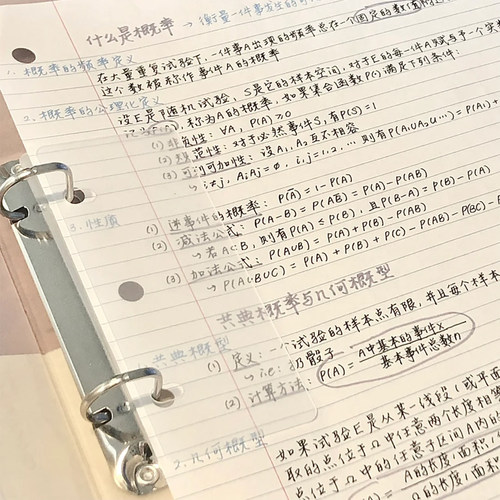 什么是概率 → 衡量一件事发生的可
1. 概率的频率定义
在大量重复试验下，一件事A出现的频率总在一个固定的数值附近
这个数被称作事件A的概率
2. 概率的公理化定义
设E是随机试验，S是它的样本空间，对于E的每一件A赋与于一个实
记为P(A)，称为A的概率，如果集合函数P(·)满足下列条件：
(1) 非负性：∀A, P(A)≥0
(2) 规范性：对于必然事件S, 有P(S)=1
(3) 可列可加性：设A₁, A₂互不相容
i≠j, AᵢAⱼ=∅, i,j=1.2..., 则有P(A₁∪A₂∪...)=P(A₁)+
3. 性质
(1) 逆事件的概率：P(Ā)=1-P(A)
(2) 减法公式：P(A-B)=P(AB̄)=P(A)-P(AB)
→ 若A⊂B, 则有P(A)≤P(B), 且P(B-A)=P(B)-P(A)
(3) 加法公式：P(A∪B)=P(A)+P(B)-P(AB)
→ P(A∪B∪C)=P(A)+P(B)+P(C)-P(AB)-P(BC)-P
共典概率与几何概型
共典概型
(1) 定义：一个试验的样本点有限，并且每个样本
→ i.e: 扔骰子
(2) 计算方法：P(A)= A中基本的事件X / 基本事件总数n
2. 几何概型
如果试验E是从某一线段(或平面
取的点位于Ω中任意两个长度相等
点位于Ω中的任意子区间A内
= A的长度,面积
Ω的长度,面积